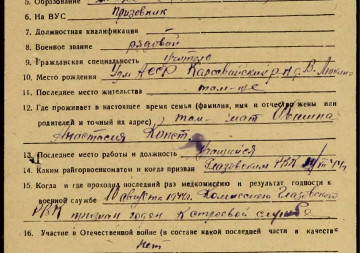 5. Образование
6. На ВУС Призовник
7. Должностная квалификация
8. Военное звание рядовой
9. Гражданская специальность
10. Место рождения Удм АССР Карсовайский р-н д.
11. Последнее место жительства там-же
12. Где проживает в настоящее время семья (фамилия, имя и отчество жены или
родителей и точный их адрес) там- мать
Анастасия Конст.
13. Последнее место работы и должность учащийся
14. Каким райгорвоенкоматом и когда призван Глазовским РВК
15. Когда и где проходил последний раз медкомиссию и результат годности к
военной службе 10 августа 1944г. Комиссией Глазовского
РВК признан годен к строевой службе
16. Участие в Отечественной войне (в составе какой последней части и в качестве
Нет